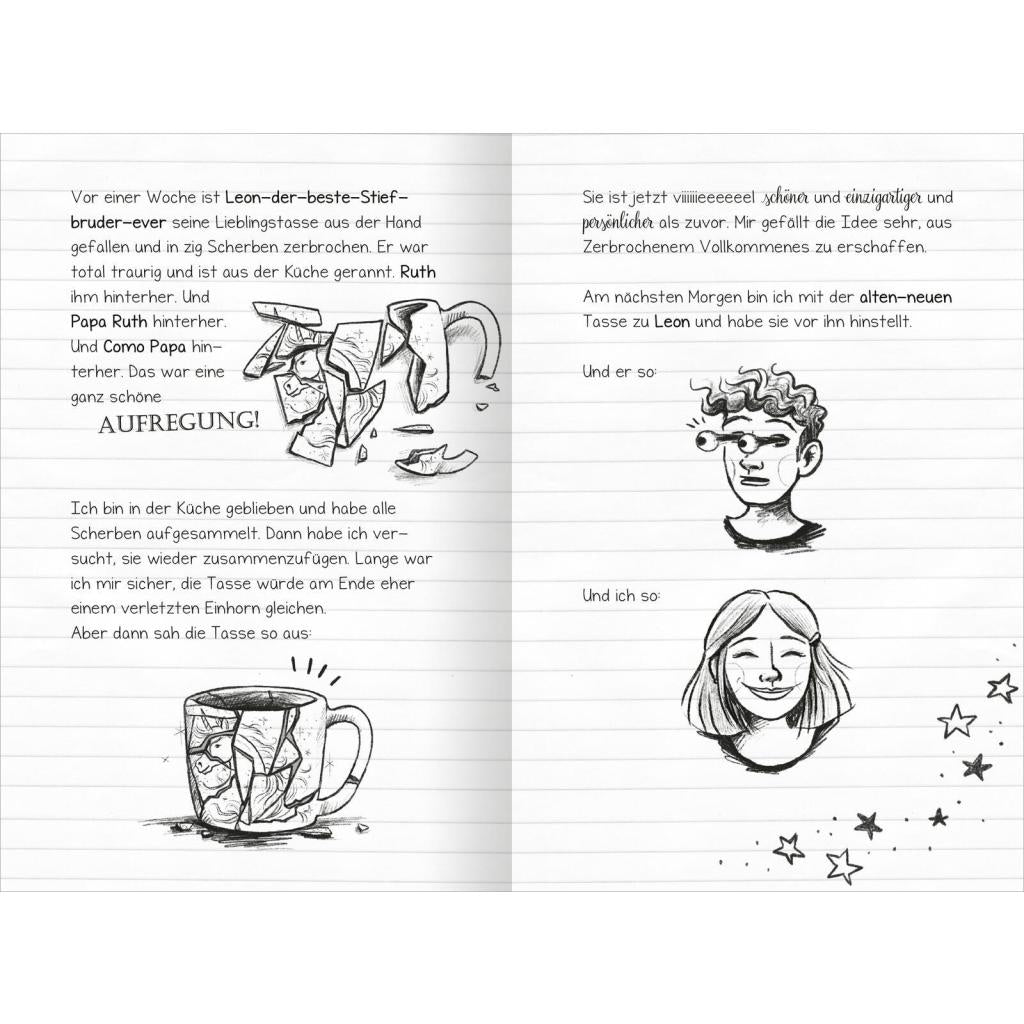 Vor einer Woche ist Leon-der-beste-Stief-
bruder-ever seine Lieblingstasse aus der Hand
gefallen und in zig Scherben zerbrochen. Er war
total traurig und ist aus der Küche gerannt. Ruth
ihm hinterher. Und
Papa Ruth hinterher.
Und Como Papa hin-
terher. Das war eine
ganz schöne
AUFREGUNG!
Ich bin in der Küche geblieben und habe alle
Scherben aufgesammelt. Dann habe ich ver-
sucht, sie wieder zusammenzufügen. Lange war
ich mir sicher, die Tasse würde am Ende eher
einem verletzten Einhorn gleichen.
Aber dann sah die Tasse so aus:
Sie ist jetzt viiiiiieeeeeel schöner und einzigartiger und
persönlicher als zuvor. Mir gefällt die Idee sehr, aus
Zerbrochenem Vollkommenes zu erschaffen.
Am nächsten Morgen bin ich mit der alten-neuen
Tasse zu Leon und habe sie vor ihn hinstellt.
Und er so:
Und ich so: